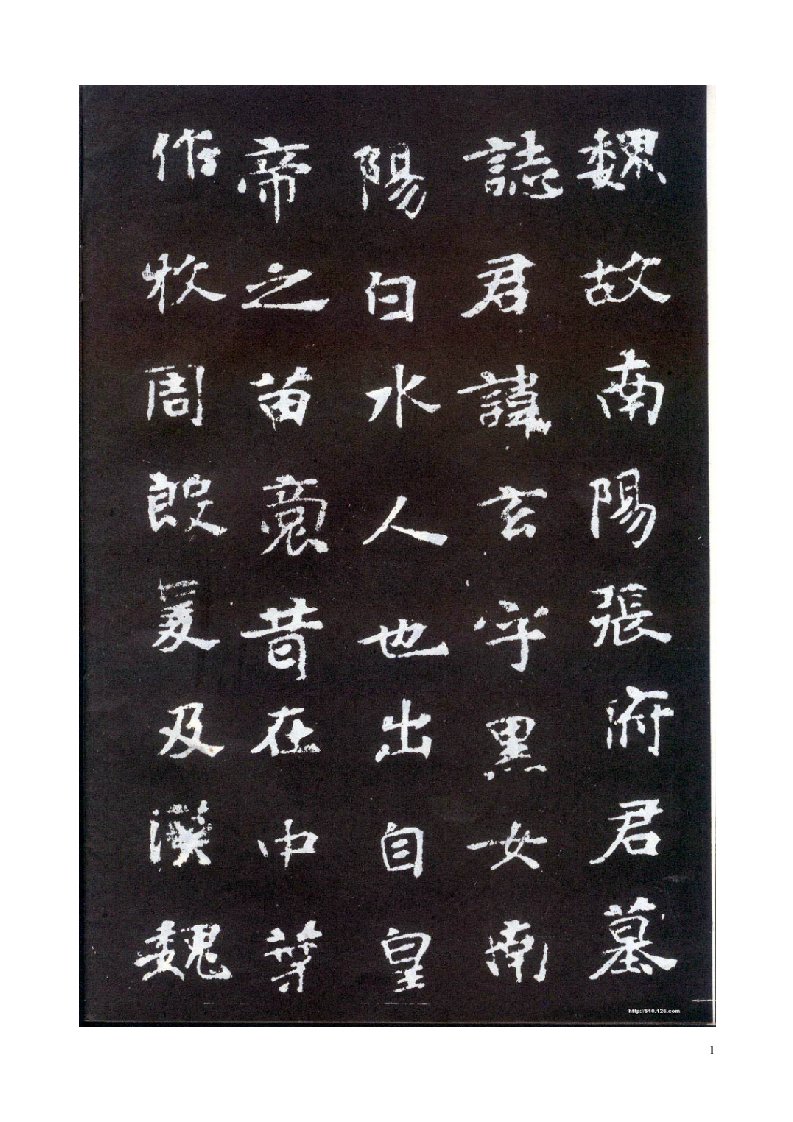 魏故南陽張府君墓
誌君諱玄字黑女南
陽白水人也出自皇
帝之苗裔昔在中葉
作牧周殷爰及漢魏
1